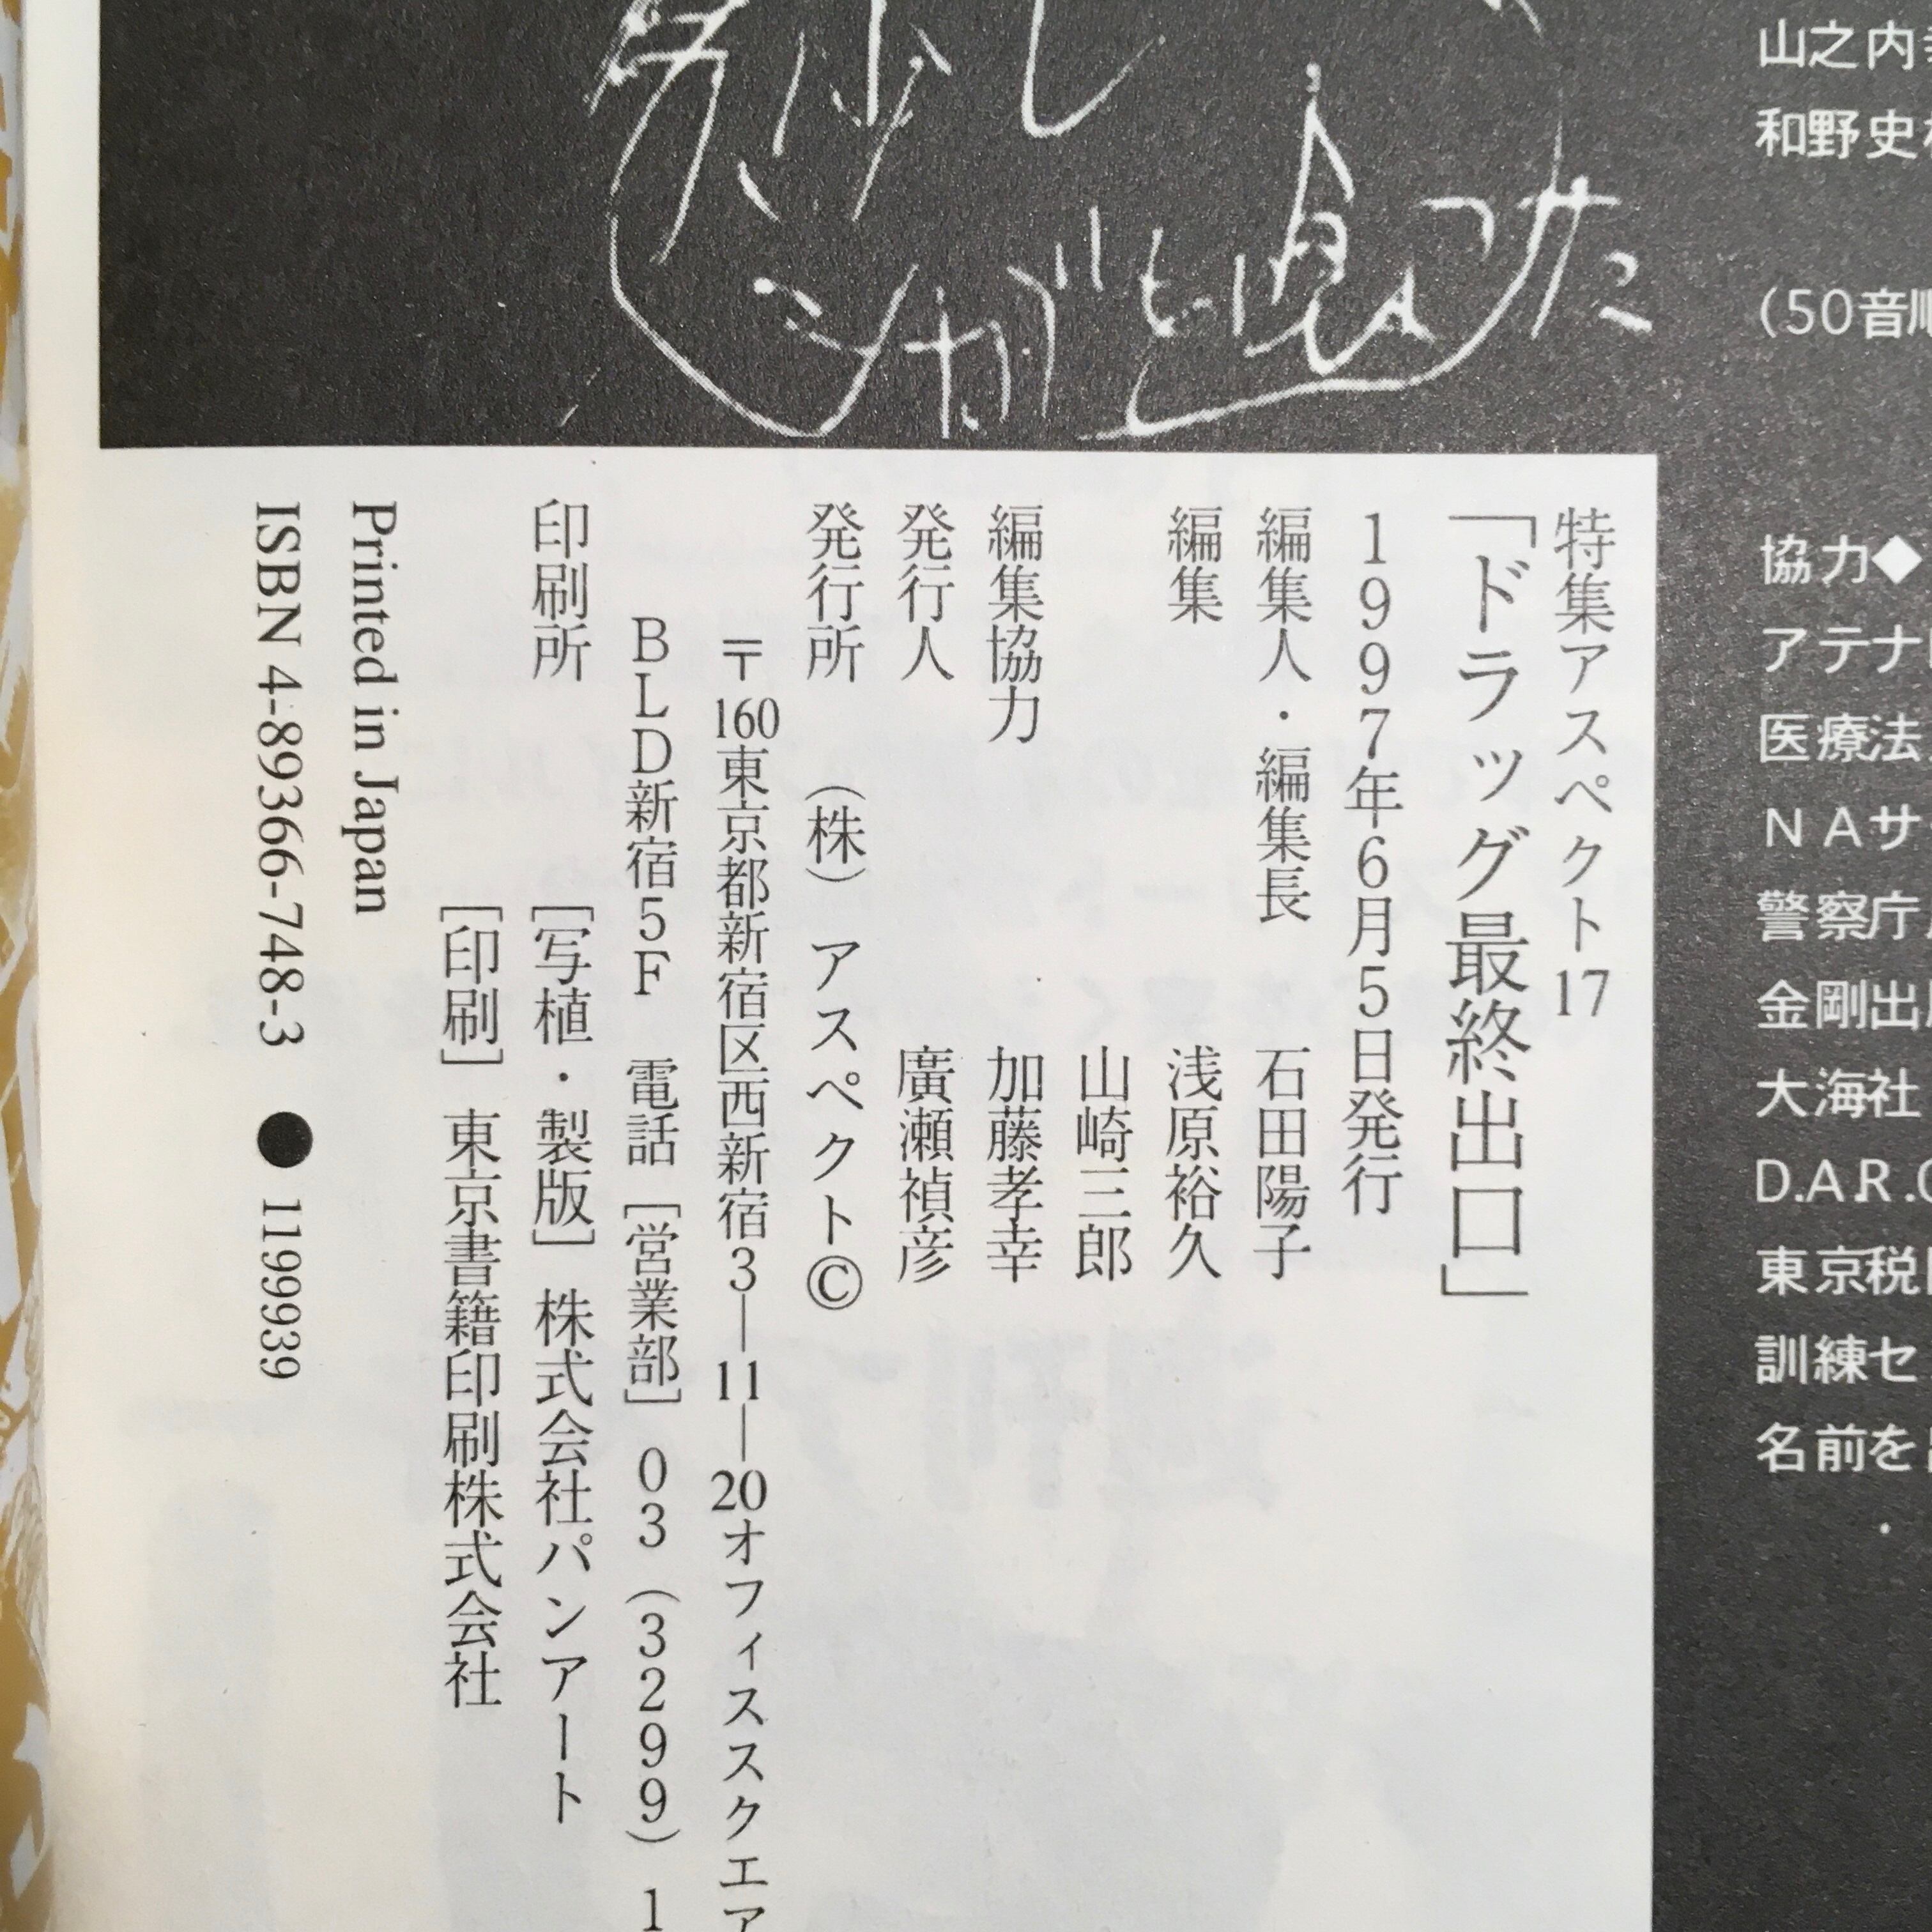 山之内
和野史
(50音順
協力◆
アテナ
医療法
NAサ
警察庁
金剛出
大海社
D.A.R.C
東京税
訓練セ
名前を
特集アスペクト17
「ドラッグ最終出口」
1997年6月5日発行
編集人・編集長 石田陽子
編集 浅原裕久
山崎三郎
編集協力 加藤孝幸
発行人 廣瀬禎彦
発行所 (株)アスペクト©
〒160東京都新宿区西新宿3―11―20オフィススクエア
BLD新宿5F 電話[営業部]03(3299)1
印刷所 [写植・製版]株式会社パンアート
[印刷]東京書籍印刷株式会社
Printed in Japan
ISBN 4-89366-748-3 ●1199939